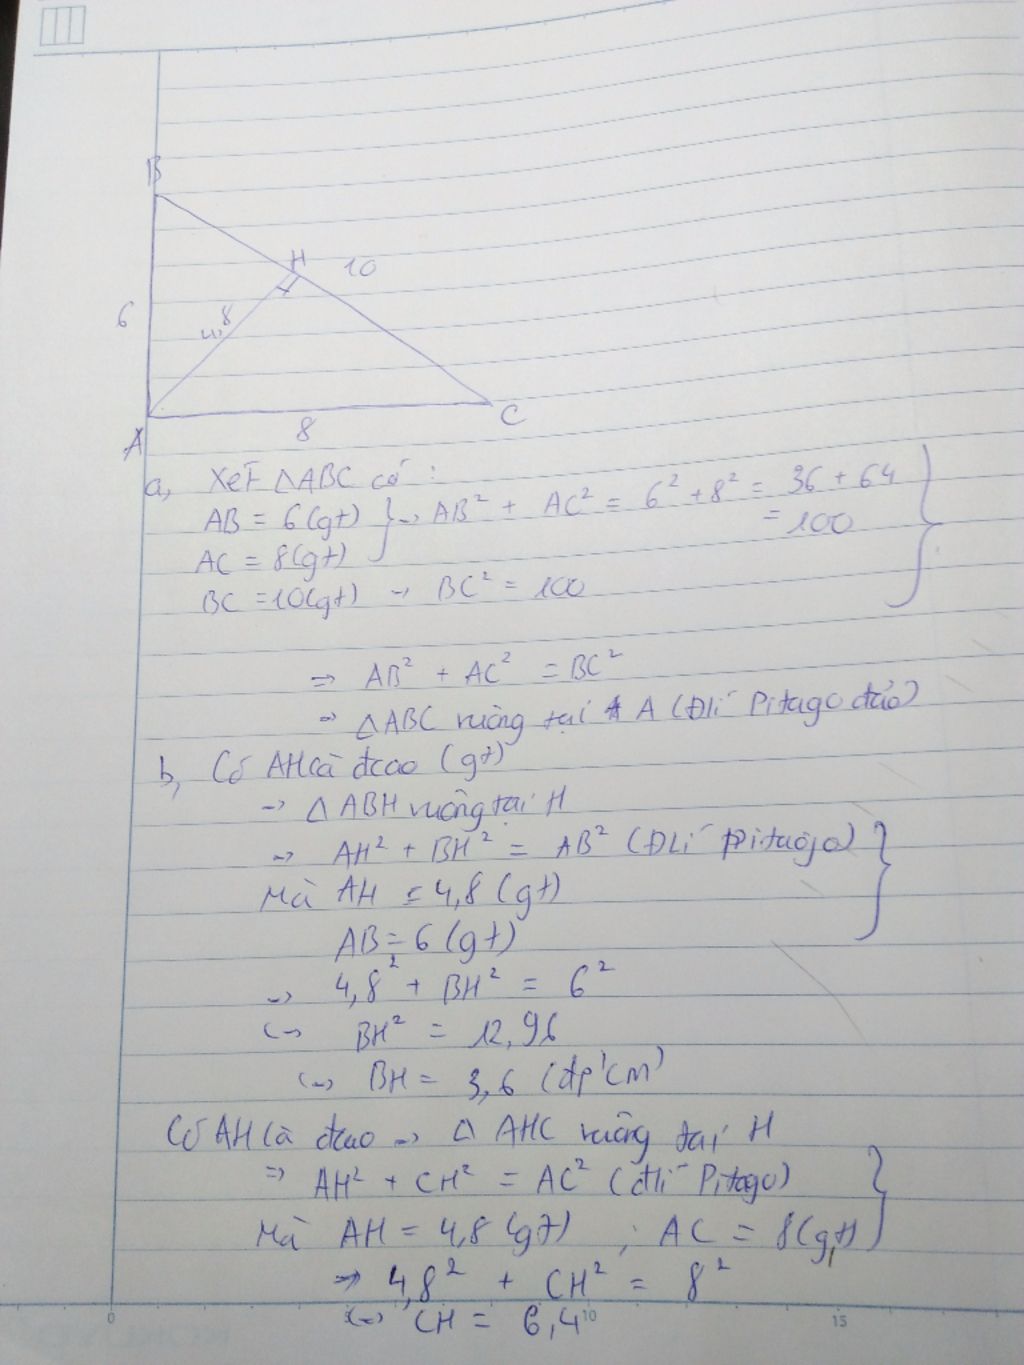 B
H
10
6
4,8
A
8
C
a, Xét △ABC có :
AB = 6(gt) } → AB² + AC² = 6² + 8² = 36 + 64
= 100
AC = 8(gt)
BC = 10(gt) → BC² = 100
⇒ AB² + AC² = BC²
⇒ △ABC vuông tại A (Đlí Pitago đảo)
b, Có AH là đcao (gt)
→ △ABH vuông tại H
⇒ AH² + BH² = AB² (Đlí Pitago)
Mà AH = 4,8 (gt)
AB = 6 (gt)
⇒ 4,8² + BH² = 6²
(⇒ BH² = 12,96
(⇒ BH = 3,6 (đpcm)
Có AH là đcao ⇒ △ AHC vuông tại H
⇒ AH² + CH² = AC² (đlí Pitago)
Mà AH = 4,8 (gt) ; AC = 8(gt)
⇒ 4,8² + CH² = 8²
(⇒ CH = 6,4
0 10 15